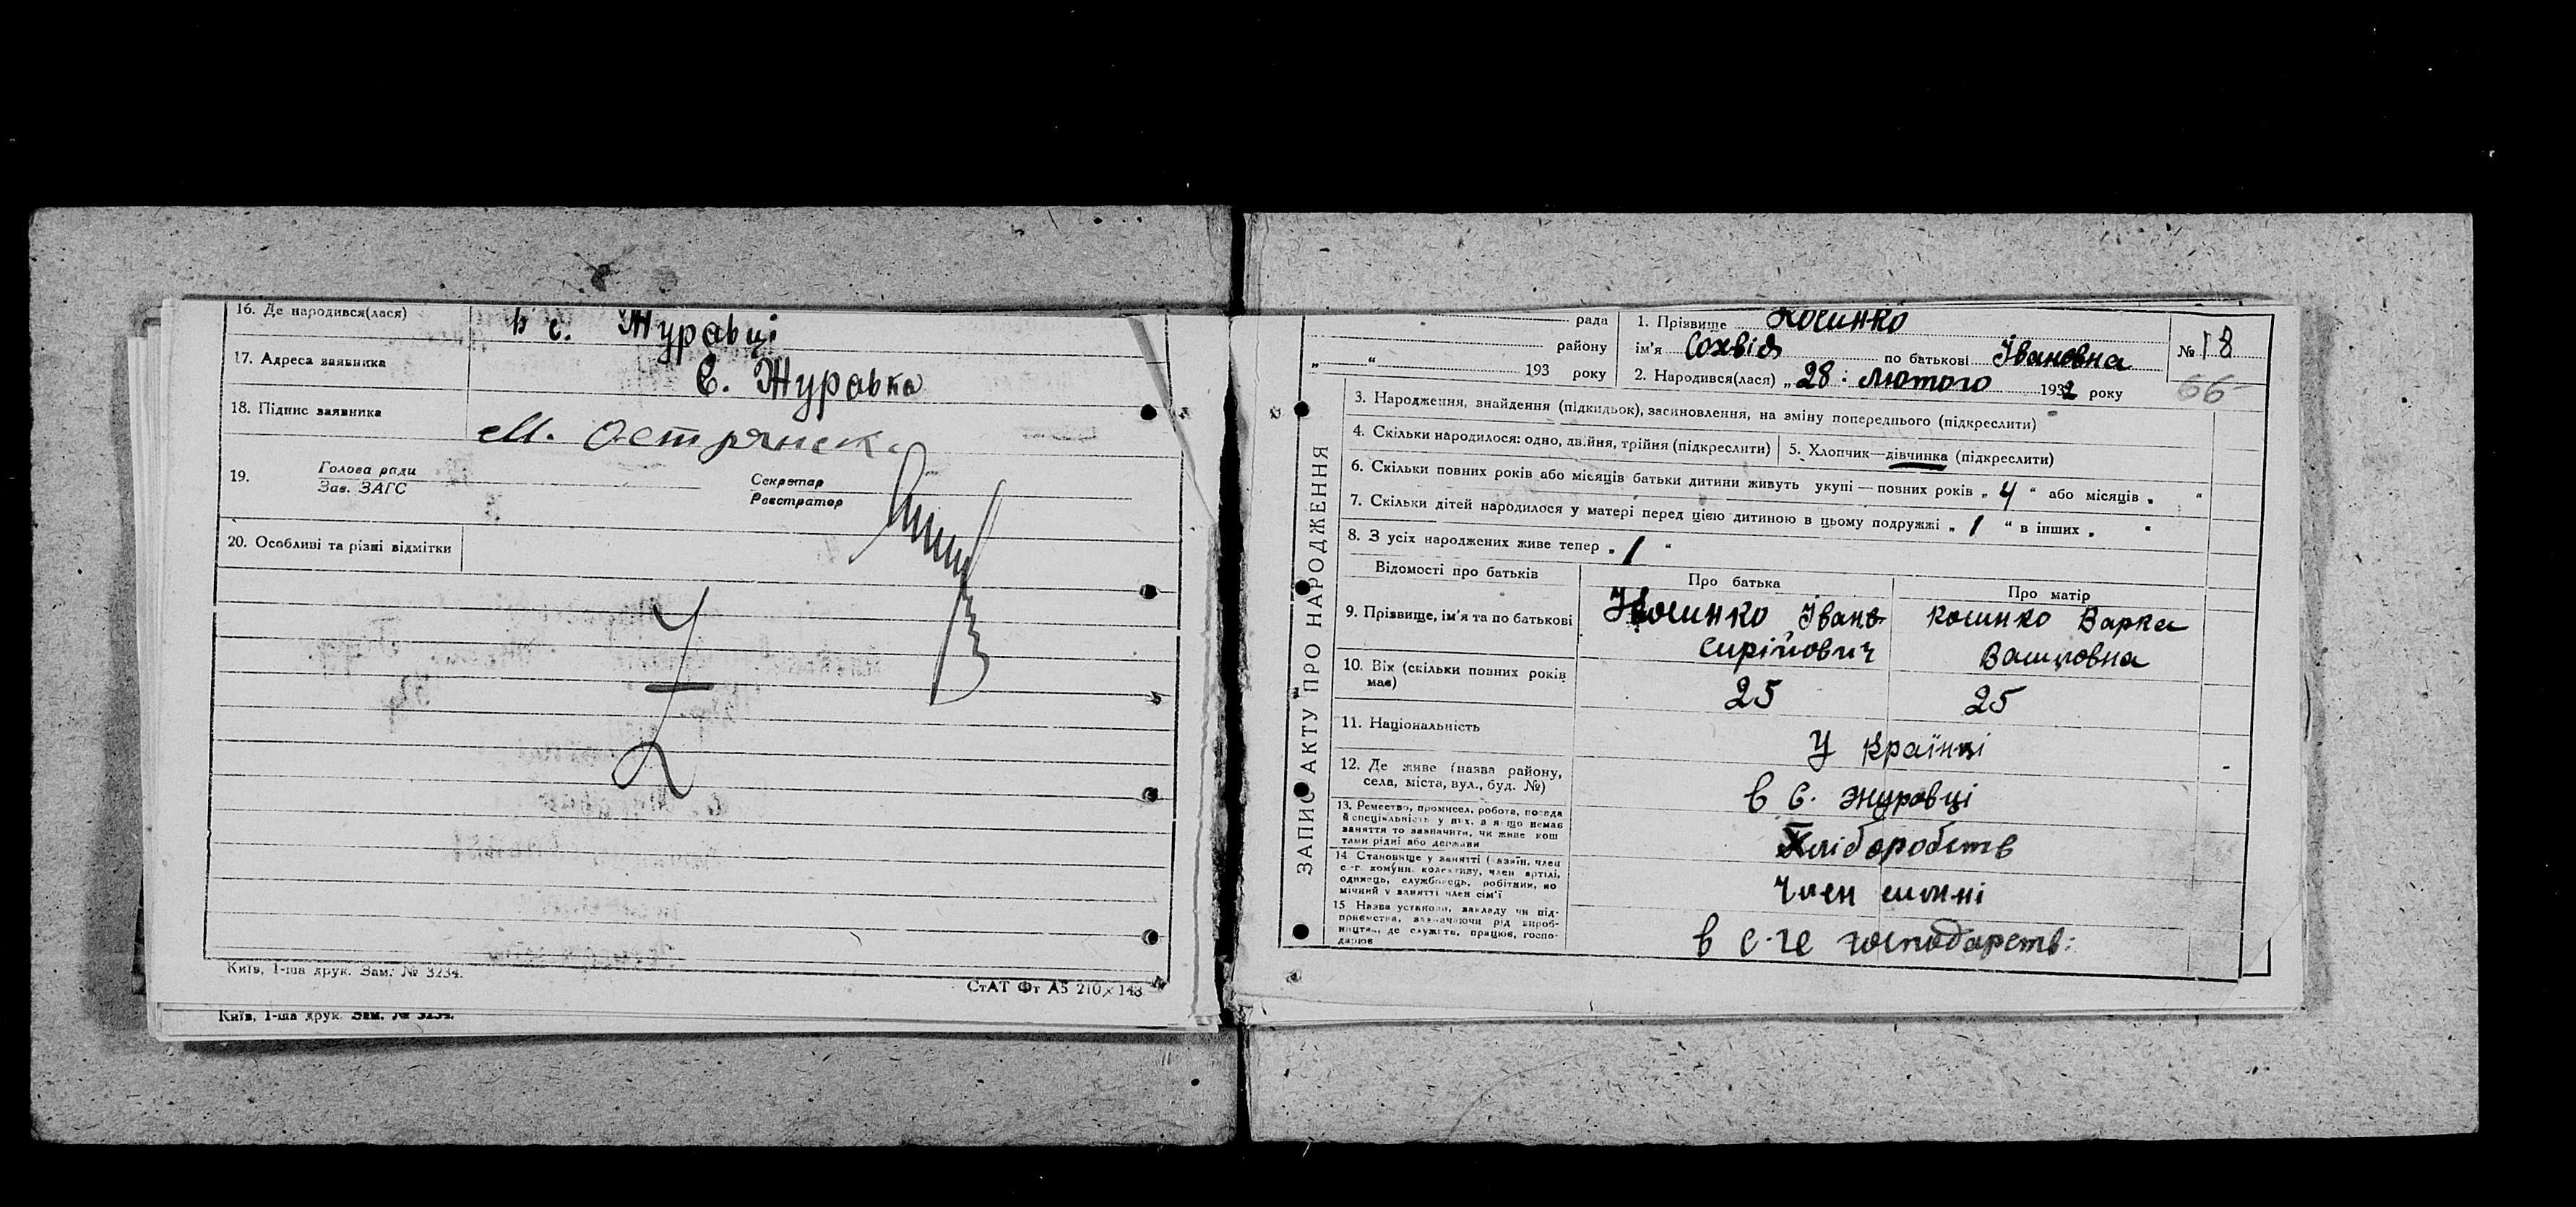 16. Де народився(лася) в с. Журавці
17. Адреса заявника с. Журавка
18. Підпис заявника М. Острянск
19. Голова ради
Зав. ЗАГС
Секретар
Реєстратор
20. Особливі та різні відмітки
Київ, 1-ша друк. Зам. № 3234.
СтАТ Фт А5 210×148
Київ, 1-ша друк. Зам. № 3234.
ЗАПИС АКТУ ПРО НАРОДЖЕННЯ
рада
району
„ “ 193 року
1. Прізвище Косинко
ім'я Сохвія по батькові Івановна
№ 18
2. Народився(лася) „28 : лютого 1932 року
66
3. Народження, знайдення (підкидьок), засиновлення, на зміну попереднього (підкреслити)
4. Скільки народилося: одно, двійня, трійня (підкреслити) 5. Хлопчик—дівчинка (підкреслити)
6. Скільки повних років або місяців батьки дитини живуть укупі — повних років „ 4 “ або місяців „ “
7. Скільки дітей народилося у матері перед цією дитиною в цьому подружжі „ 1 “ в інших „ “
8. З усіх народжених живе тепер „ 1 “
Відомості про батьків Про батька Про матір
9. Прізвище, ім'я та по батькові Косинко Іван Косинко Варка
10. Вік (скільки повних років має) 25 25
11. Національність Українці
12. Де живе (назва району, села, міста, вул., буд. №) в с. Журовці
13. Ремество, промисел, робота, посада й спеціяльність у них, а якщо немає заняття то зазначити, чи живе коштами рідні або держави Хліборобств
14 Становище у занятті (хазяїн, член с.-г. комуни, колективу, член артілі, одинець, службовець, робітник, помічний у занятті член сім'ї Член
15 Назва установи, закладу чи підприємства, зазначаючи рід виробництва, де служить, працює, господарює в с-ге господарств: